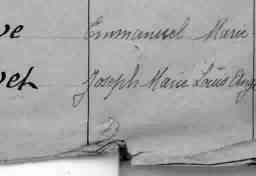 ve Emmanuel Marie
vet Joseph Marie Louis Ange